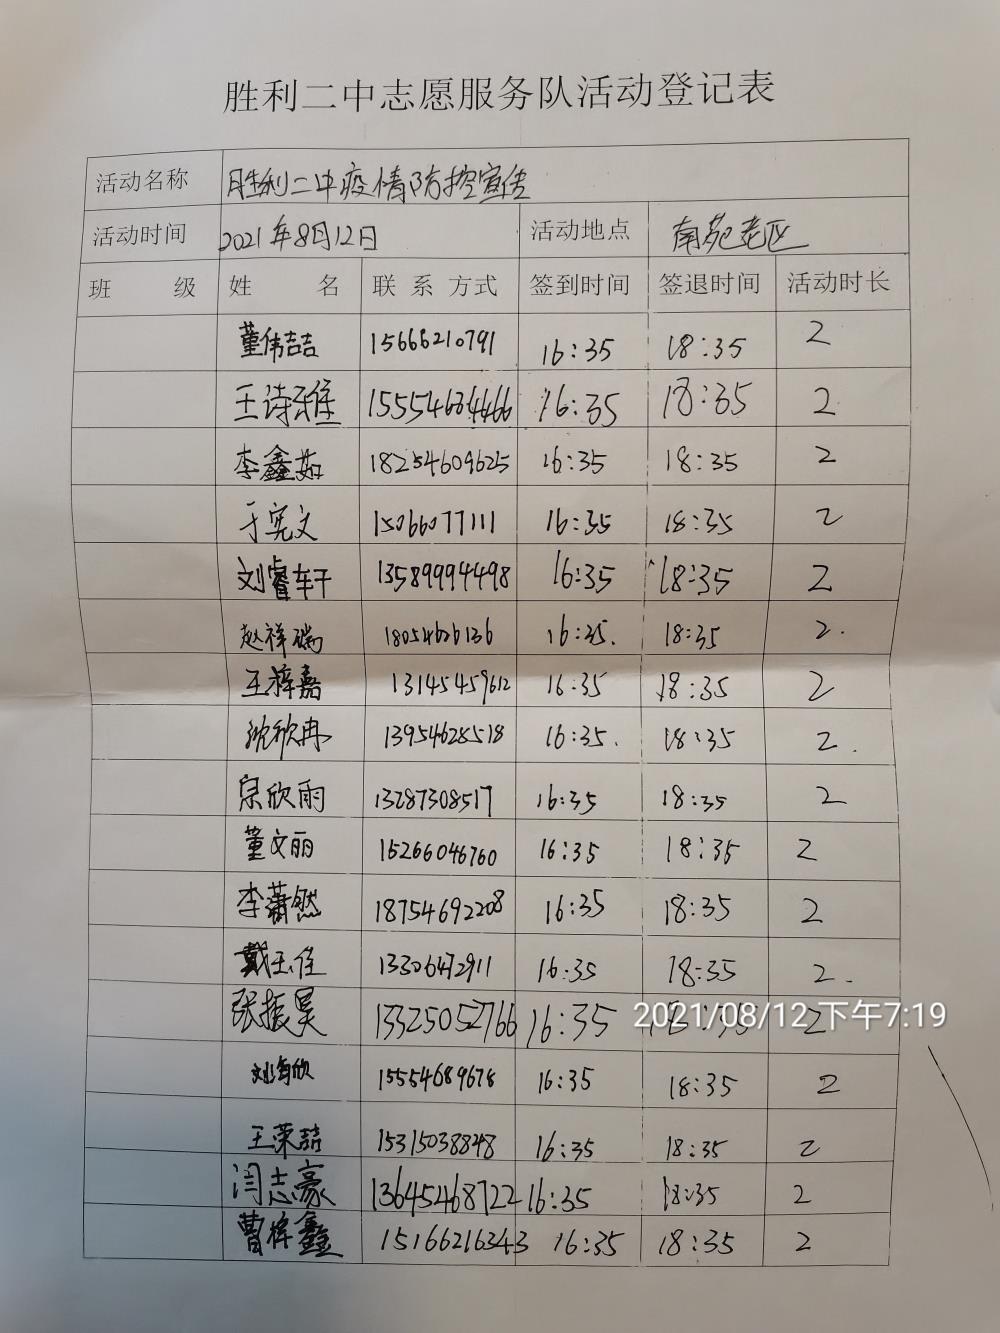 胜利二中志愿服务队活动登记表
活动名称 胜利二中疫情防控宣传
活动时间 2021年8月12日 活动地点 南苑老区
班 级 姓 名 联 系 方式 签到时间 签退时间 活动时长
董伟喆 15666210791 16:35 18:35 2
王诗雅 16:35 18:35 2
李鑫茹 18254609625 16:35 18:35 2
于宪文 15066077111 16:35 18:35 2
刘睿轩 13589994498 16:35 18:35 2
赵祥瑞 18054626136 16:35. 18:35 2.
王梓嘉 13145459612 16:35 18:35 2
沈欣冉 13954628518 16:35. 18:35 2.
宗欣雨 13287308517 16:35 18:35 2
董文丽 15266046760 16:35 18:35 2
李潇然 18754692208 16:35 18:35 2
戴玉佳 13306472911 16:35 18:35 2.
张振昊 13325052766 16:35 2021/08/12 下午7:19 2
15554689678 16:35 18:35 2
王荣喆 15315038848 16:35 18:35 2
闫志豪 13645468722 16:35 18:35 2
曹梓鑫 15166216343 16:35 18:35 2